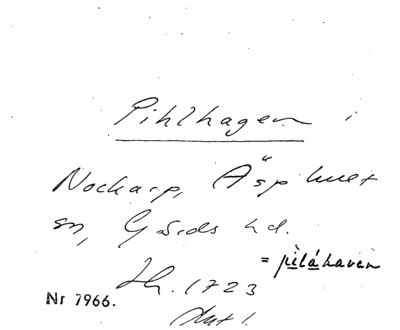 Pihlhagen i
Nockarp, Äsphult
sn, Gärds hd.
= piláhaven
Jh. 1723
Nr 7966.